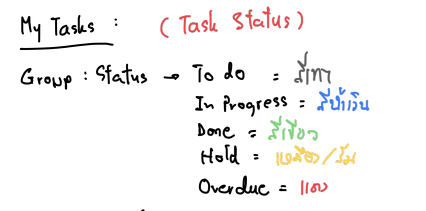 My Tasks : (Task Status)
Group : Status → To do = สีเทา
In Progress = สีน้ำเงิน
Done = สีเขียว
Hold = เหลือง/ส้ม
Overdue = แดง